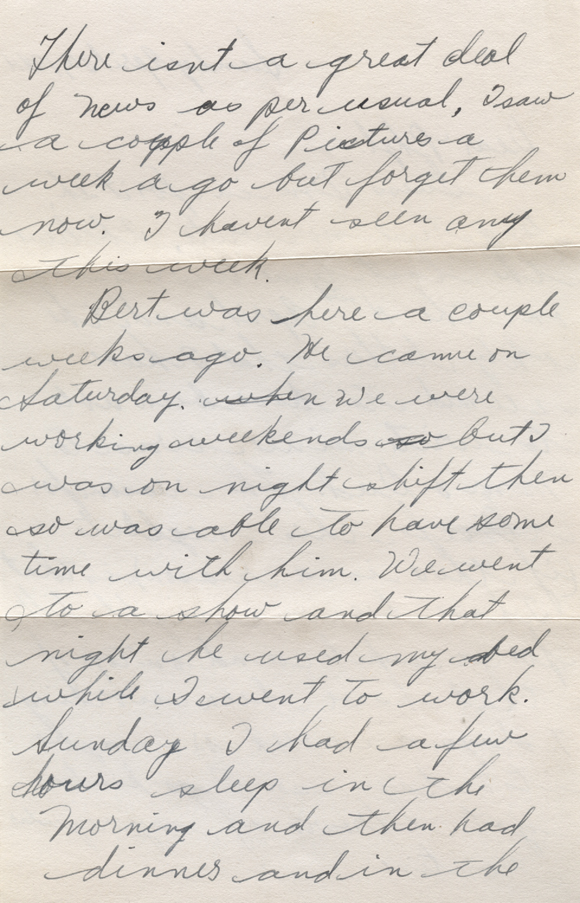 There isnt a great deal
of news as per usual, I saw
a couple of Pictures a
week ago but forget them
now. I havent seen any
this week.
Bert was here a couple
weeks ago. He came on
Saturday. when We were
working weekends so but I
was on night shift then
so was able to have some
time with him. We went
to a show and that
night he used my bed
while I went to work.
Sunday I had a few
hours sleep in the
Morning and then had
dinner and in the